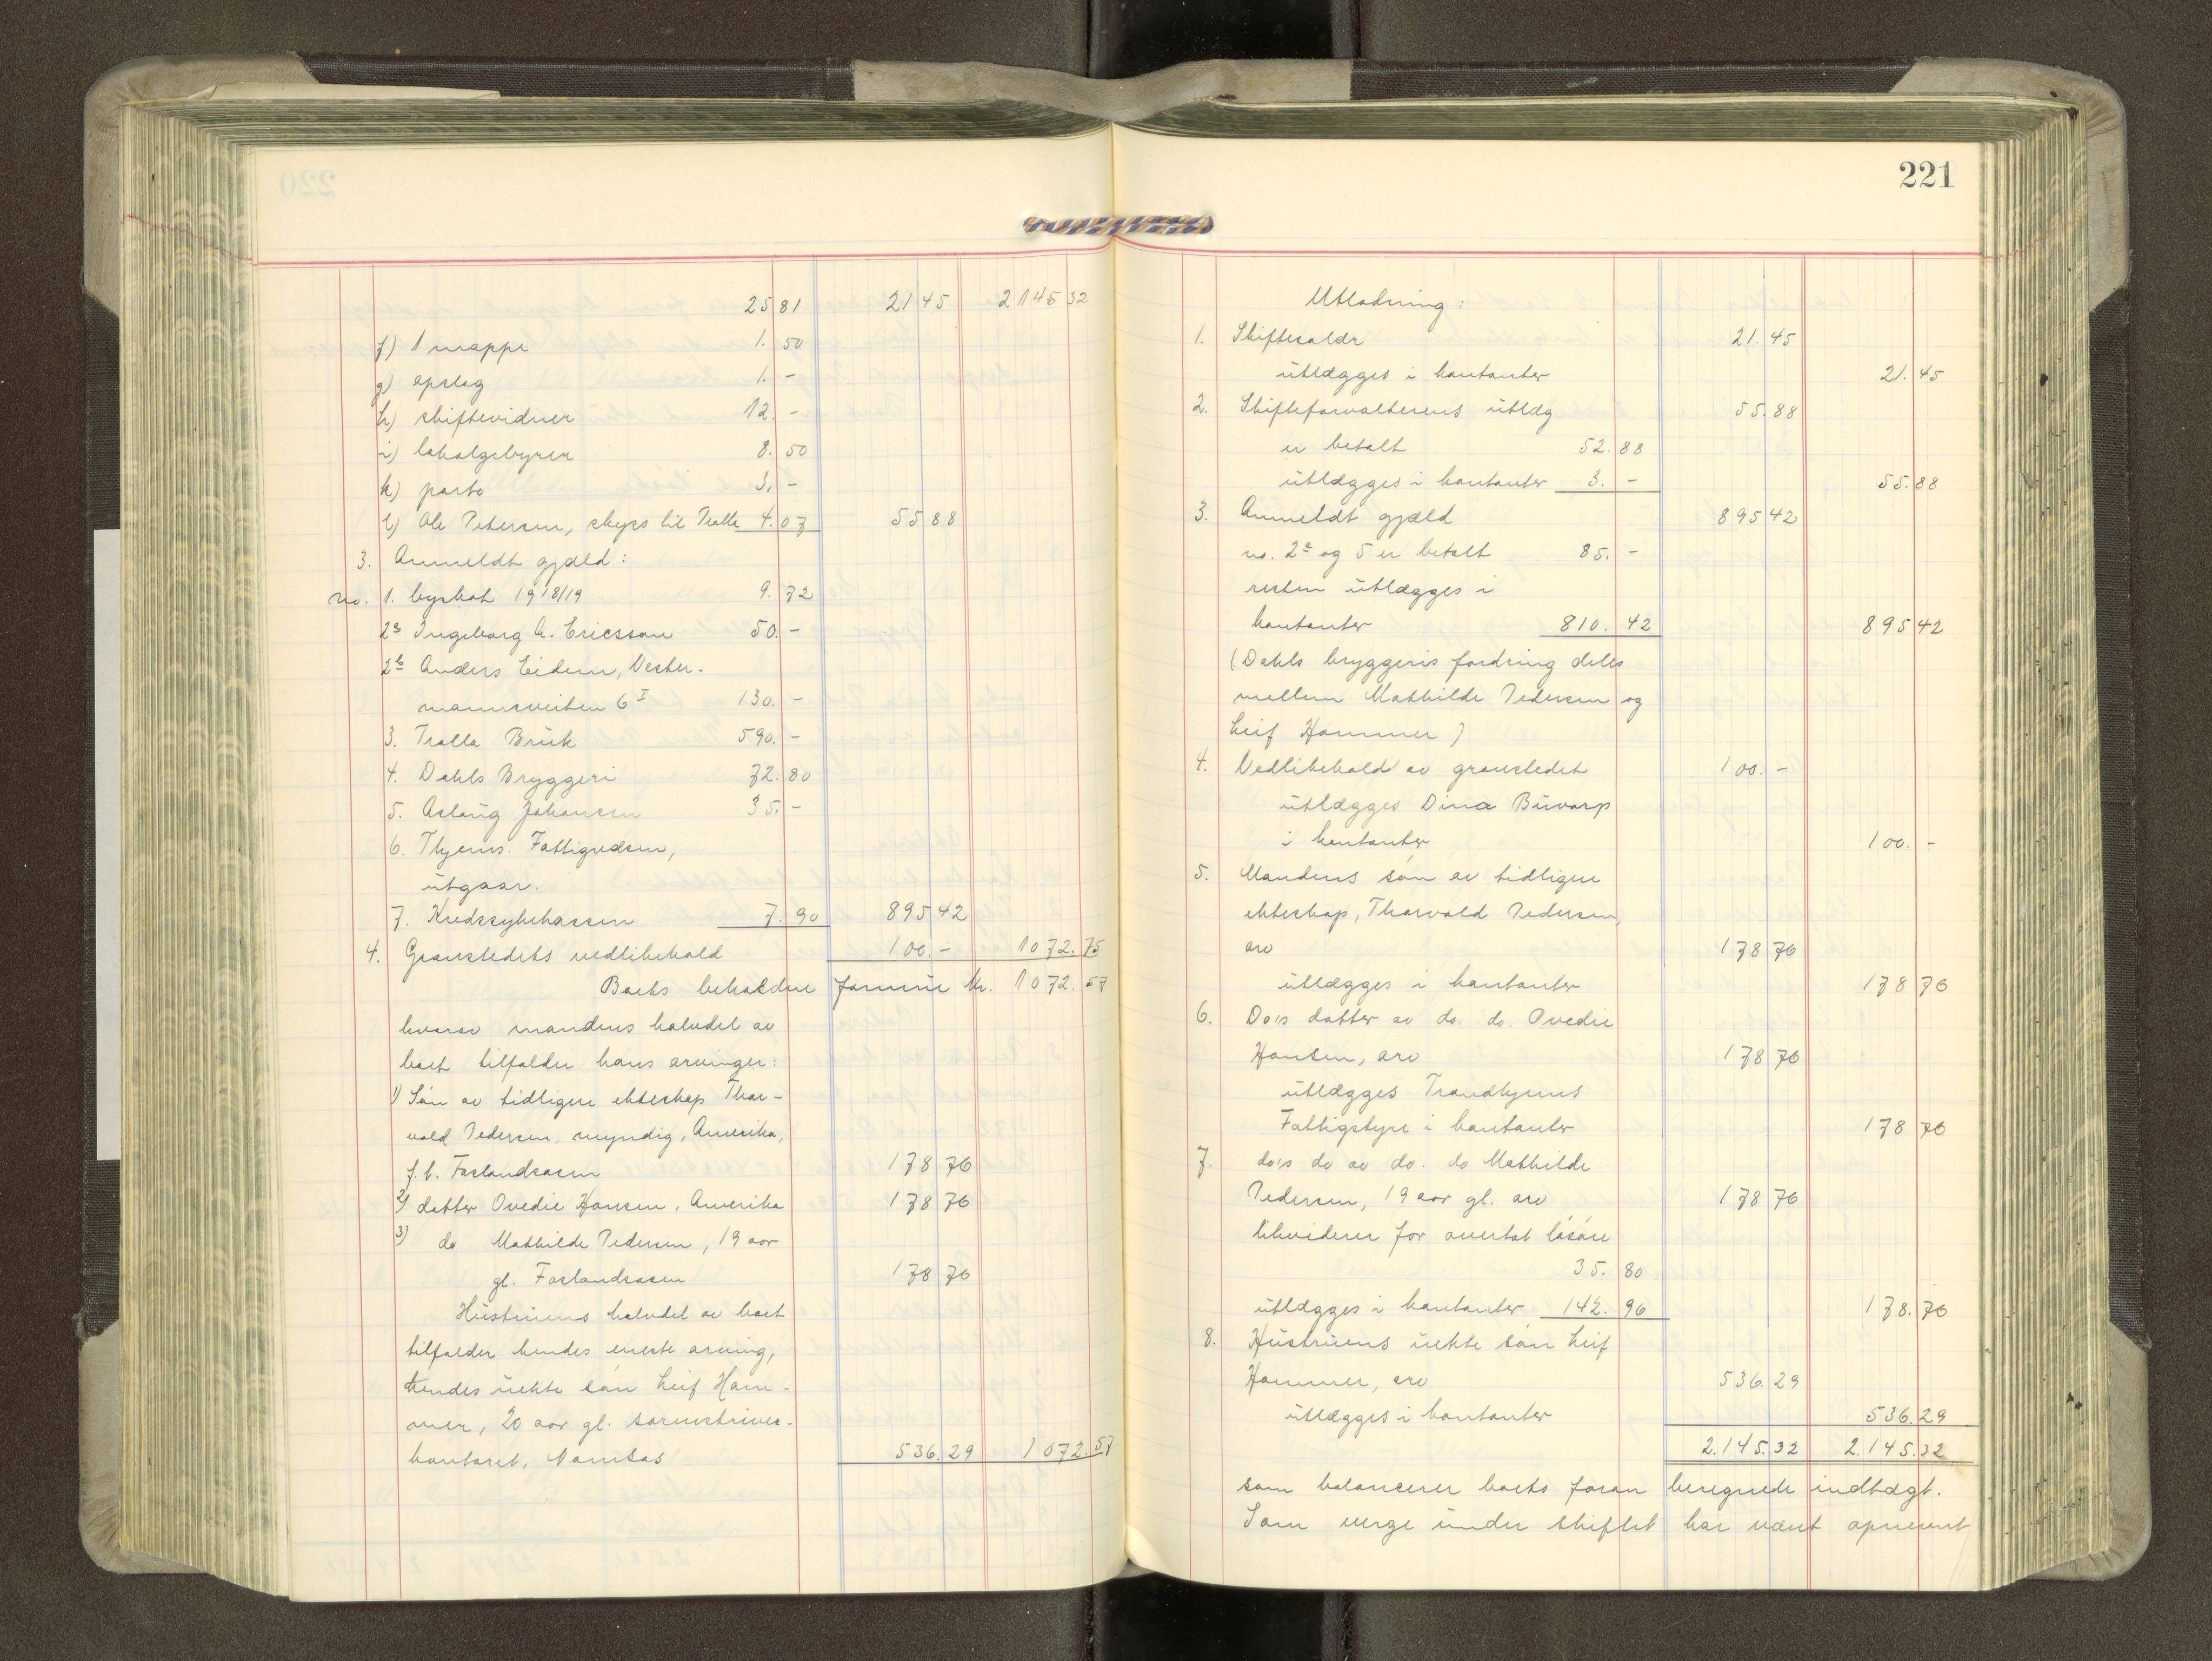 25 81 21 45 2145 32
f) 1 mappe 1. 50
g) opslag 1. -
h) skiftevidner 12. -
i) lokalgebyrer 8. 50
k) porto 3. -
l) Ole Petersen, skyss til Tralla 4.07 55 88
3. Anmeldt gjæld:
no. 1. byskat 1918/19 9. 72
2a Ingeborg A. Ericsson 50. -
2b Anders Eidem, Vester-
mannsveiten 6 I 130. -
3. Tralla Bruk 590. -
4. Dahls Bryggeri 72. 80
5. Aslaug Johansen 35. -
6. Thjems. Fattigvæsen,
utgaar.
7. Kredssykekassen 7. 90 895 42
4. Gravstedets vedlikehold 100. - 1072. 75
Boets beholdne formue kr. 1072. 57
hvorav mandens halvdel av
boet tilfalder hans arvinger:
1) Søn av tidligere ekteskap Thor-
vald Pedersen, myndig, Amerika,
f. t. Foslandsosen 178 76
2) datter Ovedie Hansen, Amerika 178 76
3) do Mathilde Pedersen, 19 aar
gl. Foslandsosen 178 76
Hustruens halvdel av boet
tilfalder hendes eneste arving,
hendes uekte søn Leif Ham-
mer, 20 aar gl. sorenskriver-
kontoret, Namsos 536. 29 1072. 57
221
Utlodning:
1. Skiftesaldr 21. 45
utlægges i kontanter 21. 45
2. Skifteforvalterens utlæg 55. 88
er betalt 52. 88
utlægges i kontanter 3. - 55. 88
3. Anmeldt gjæld 895 42
no. 2a og 5 er betalt 85. -
resten utlægges i
kontanter 810. 42 895 42
(Dahls bryggeris fordring deles
mellem Mathilde Pedersen og
Leif Hammer)
4. Vedlikehold av gravstedet 100. -
utlægges Dina Buvarp
i kontanter 100. -
5. Mandens søn av tidligere
ekteskap, Thorvald Pedersen,
arv 178 76
utlægges i kontanter 178 76
6. Do's datter av do. do. Ovedie
Hansen, arv 178 76
utlægges Trondhjems
Fattigstyre i kontanter 178 76
7. do's do av do. do Mathilde
Pedersen, 19 aar gl. arv 178 76
likviderer for overtat løsøre
35. 80
utlægges i kontanter 142. 96 178. 76
8. Hustruens uekte søn Leif
Hammer, arv 536. 29
utlægges i kontanter 536. 29
2.145. 32 2.145. 32
som balancerer boets foran beregnede indtægt.
Som verge under skiftet har været opnævnt